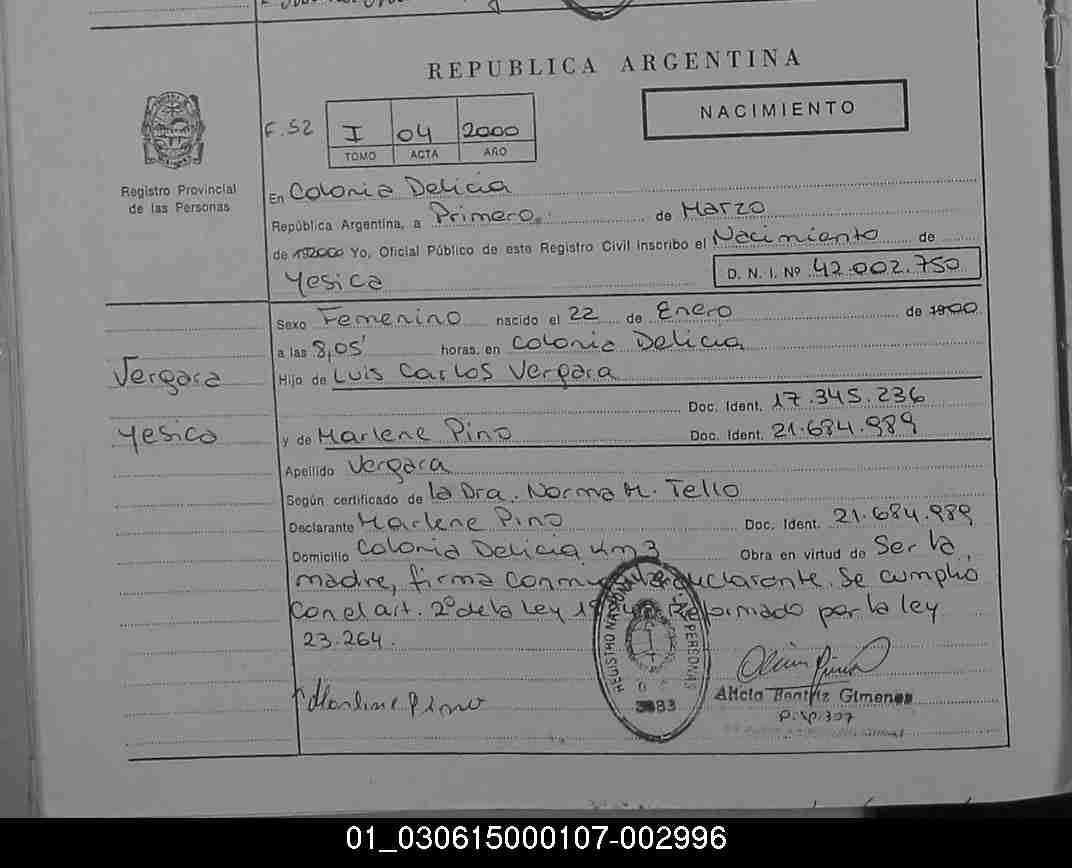 REPUBLICA ARGENTINA
NACIMIENTO
F. 52
I 04 2000
TOMO ACTA AÑO
Registro Provincial
de las Personas
En Colonia Delicia
República Argentina, a Primero. de Marzo
de 2000 Yo, Oficial Público de este Registro Civil inscribo el Nacimiento de
Yesica D. N. I. Nº 42.002.750
Sexo Femenino nacido el 22 de Enero de
a las 8,05' horas, en Colonia Delicia
Vergara
Hijo de Luis Carlos Vergara
Doc. Ident. 17.345.236
Yesica
y de Marlene Pino Doc. Ident. 21.684.989
Apellido Vergara
Según certificado de la Dra. Norma M. Tello
Declarante Marlene Pino Doc. Ident. 21.684.989
Domicilio Colonia Delicia km 3 Obra en virtud de Ser la,
madre, firma declarante. Se cumplio
con el art. 2º de la Ley por la ley
23.264.
Marlene Pino
PERSONAS
Alicia Beatriz Gimenez
01_030615000107-002996